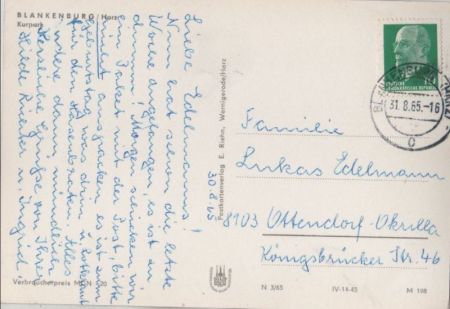 BLANKENBURG/Harz
Kurpark
30.8.65
Liebe Edelmanns!
Nun hat schon die letzte
Woche angefangen, es ist zu
dumm! Morgen schicken wir
ein Paket mit der Post, bitte
nicht auspacken es ist zum
Geburtstag was drin u. Lutz kommt
für den Hausarbeiten Alles
andere dann mündlich
Herzliche Grüße von Ihren
u. Ingrid
Postkartenverlag E. Riehn, Wernigerode/Harz
DEUTSCHE
DEMOKRATISCHE REPUBLIK
BLANKENBURG (HARZ)
31.8.65.-16
c
Familie
Lukas Edelmann
8103 Ottendorf-Okrilla
Königsbrücken Str. 46
Verbraucherpreis MDN 0,20
N 3/65
IV-14-45
M 198